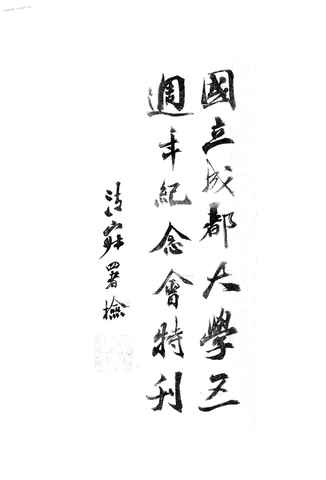 國立成都大學五
週年紀念會特刊
清寂署檢